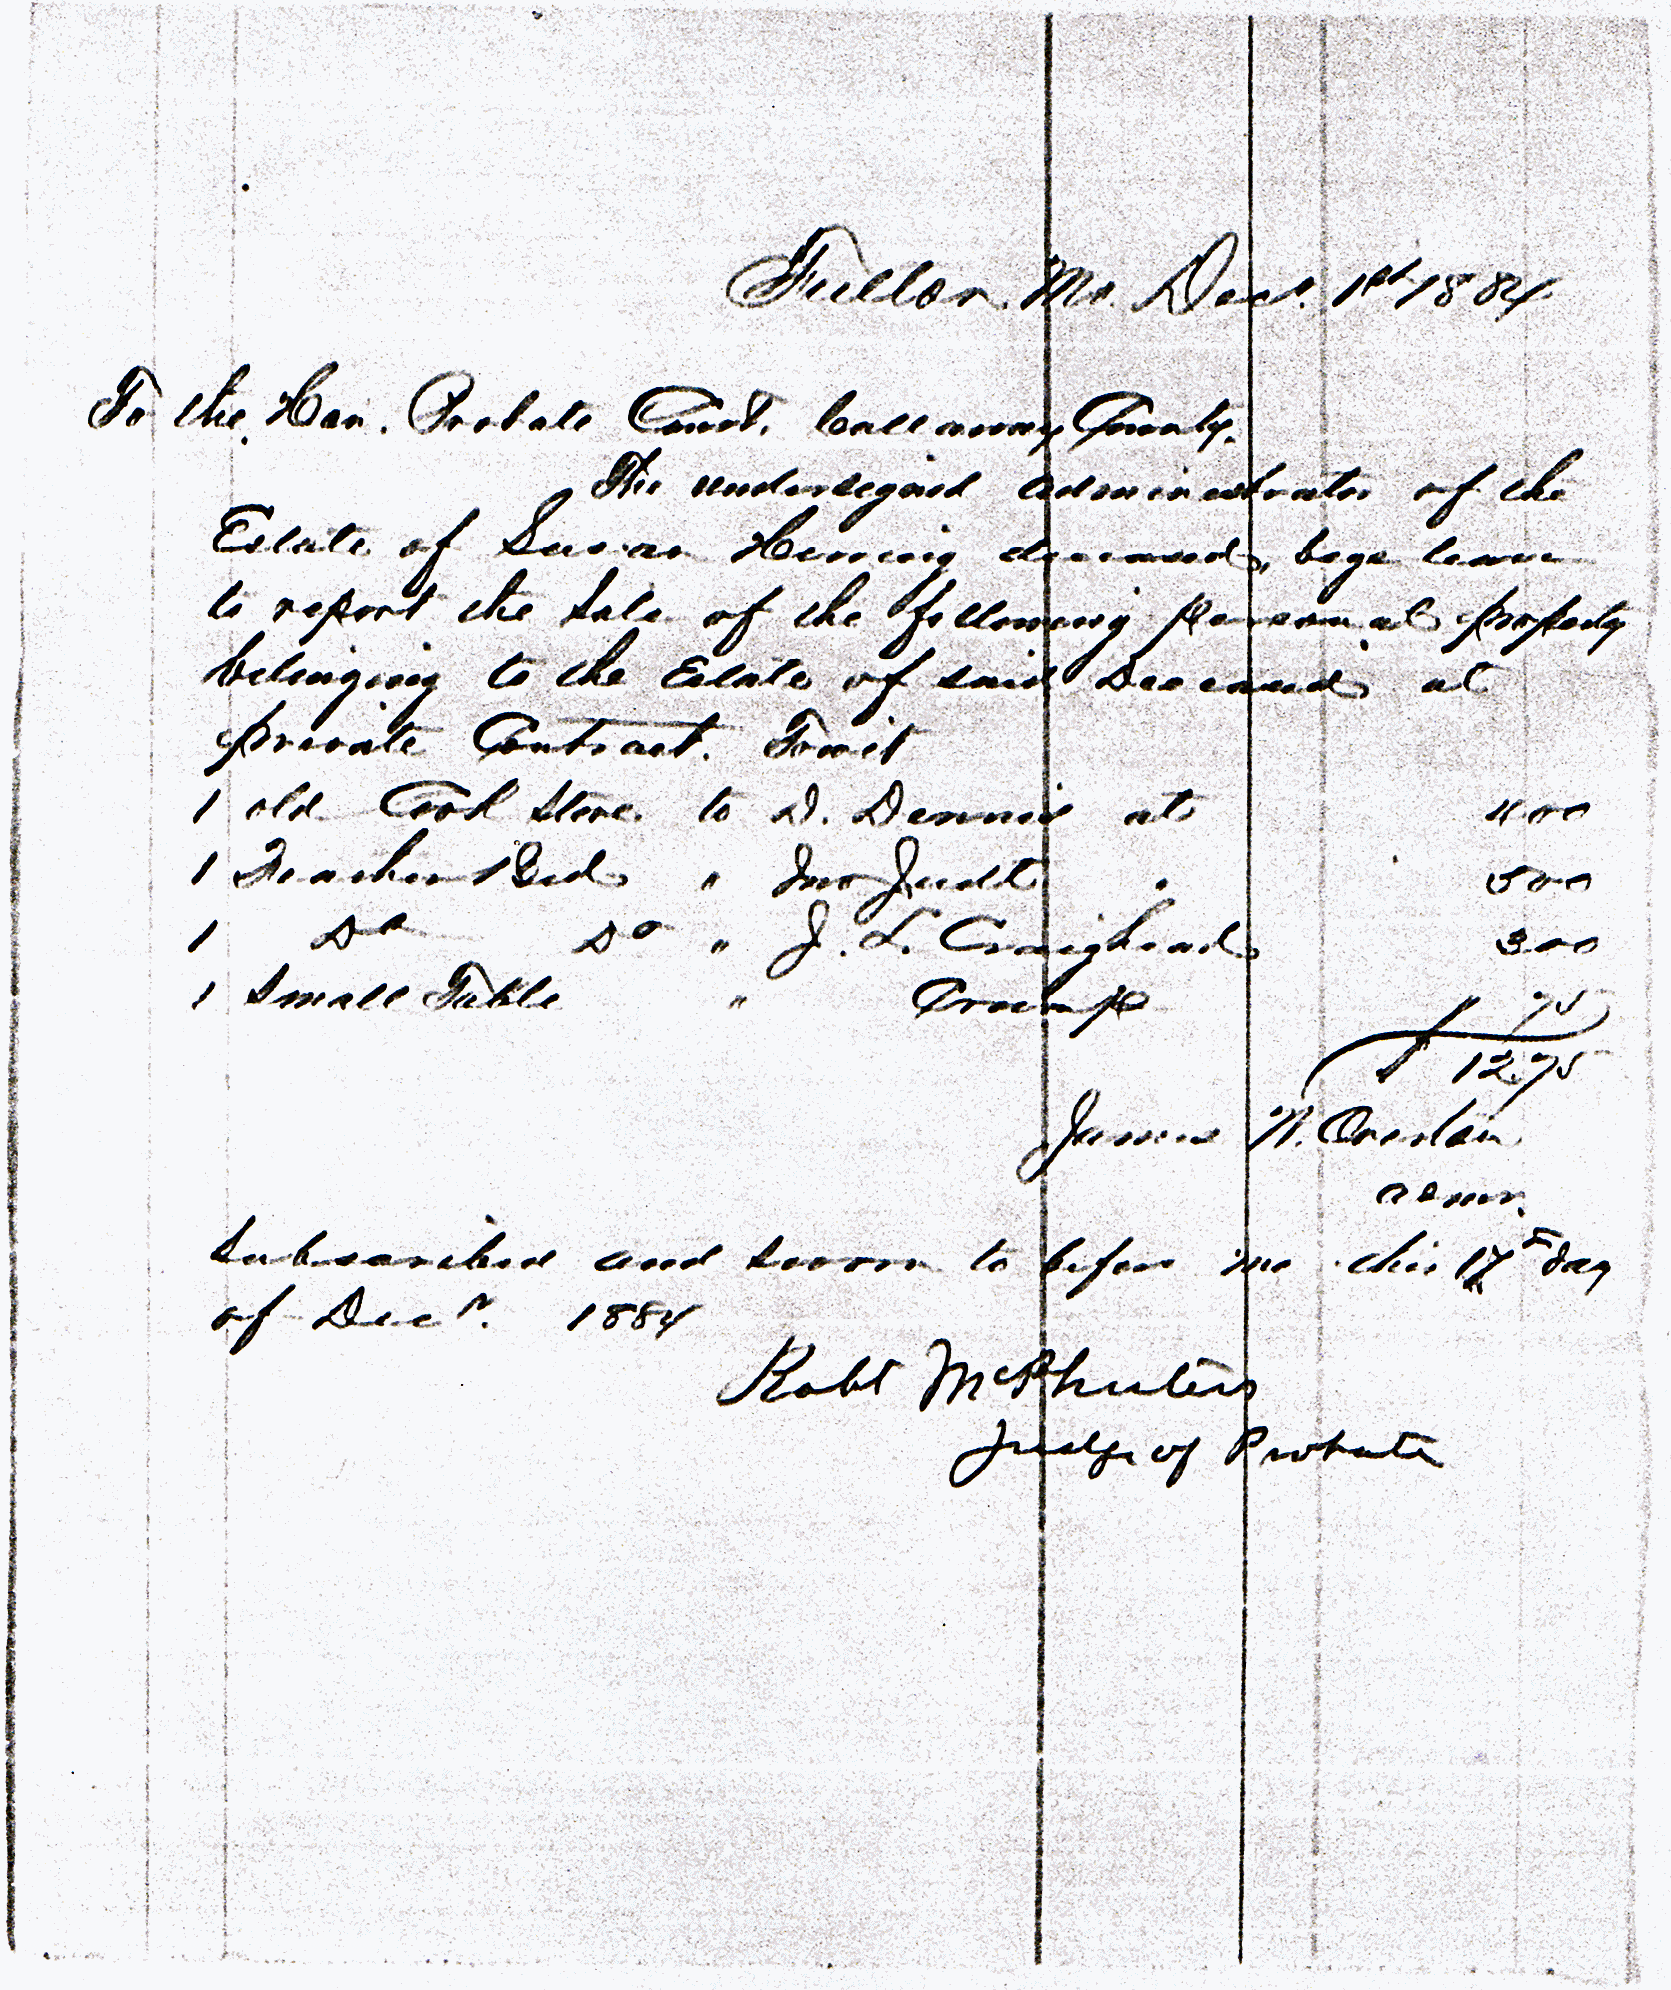 Fulton Mo. Decr. 1st 1884
To the Hon. Probate Court, Callaway County.
The undersigned administrator of the
Estate of Susan deceased, begs leave
to report the sale of the following personal property
belonging to the Estate of said Deceased at
private Contract. Towit
1 old Cook stove to D. Dennis at 4 00
1 Feather Bed " Jno Judt " 5 00
1 Do Do " J. L. Craighead 3 00
1 Small Table " Crump 75
$ 12.75
James N.
admr.
Subscribed and sworn to before me this 17th day
of Decr. 1884
Robt McPheeters
Judge of Probate